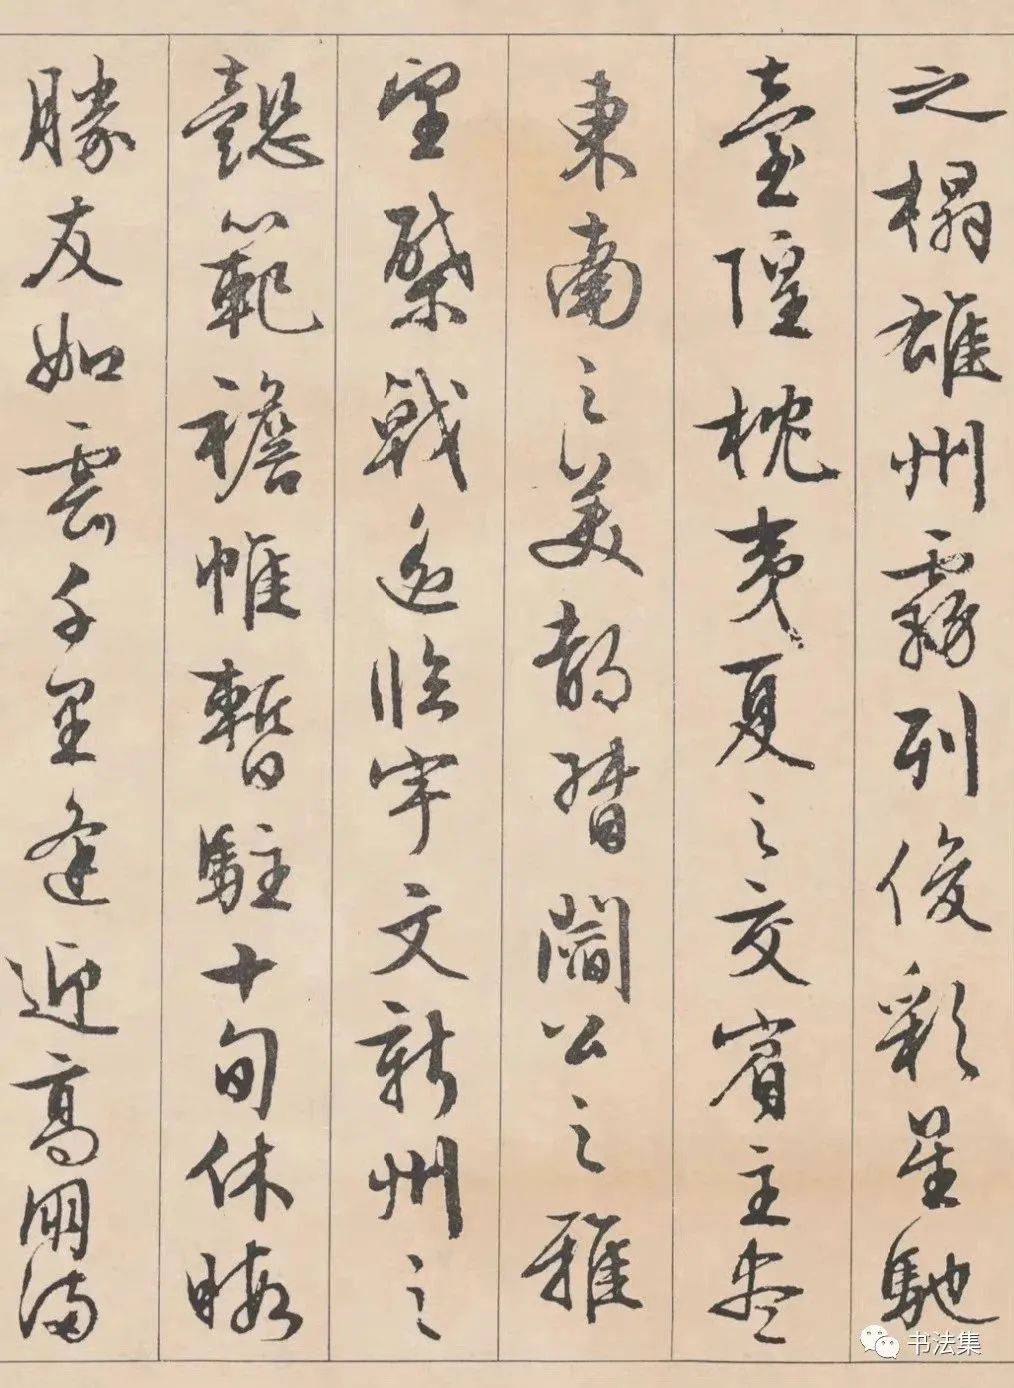 之榻雄州霧列俊彩星馳
臺隍枕夷夏之交賓主盡
東南之美都督閻公之雅
望棨戟遙臨宇文新州之
懿範襜帷暫駐十旬休暇
勝友如雲千里逢迎高朋滿
书法集